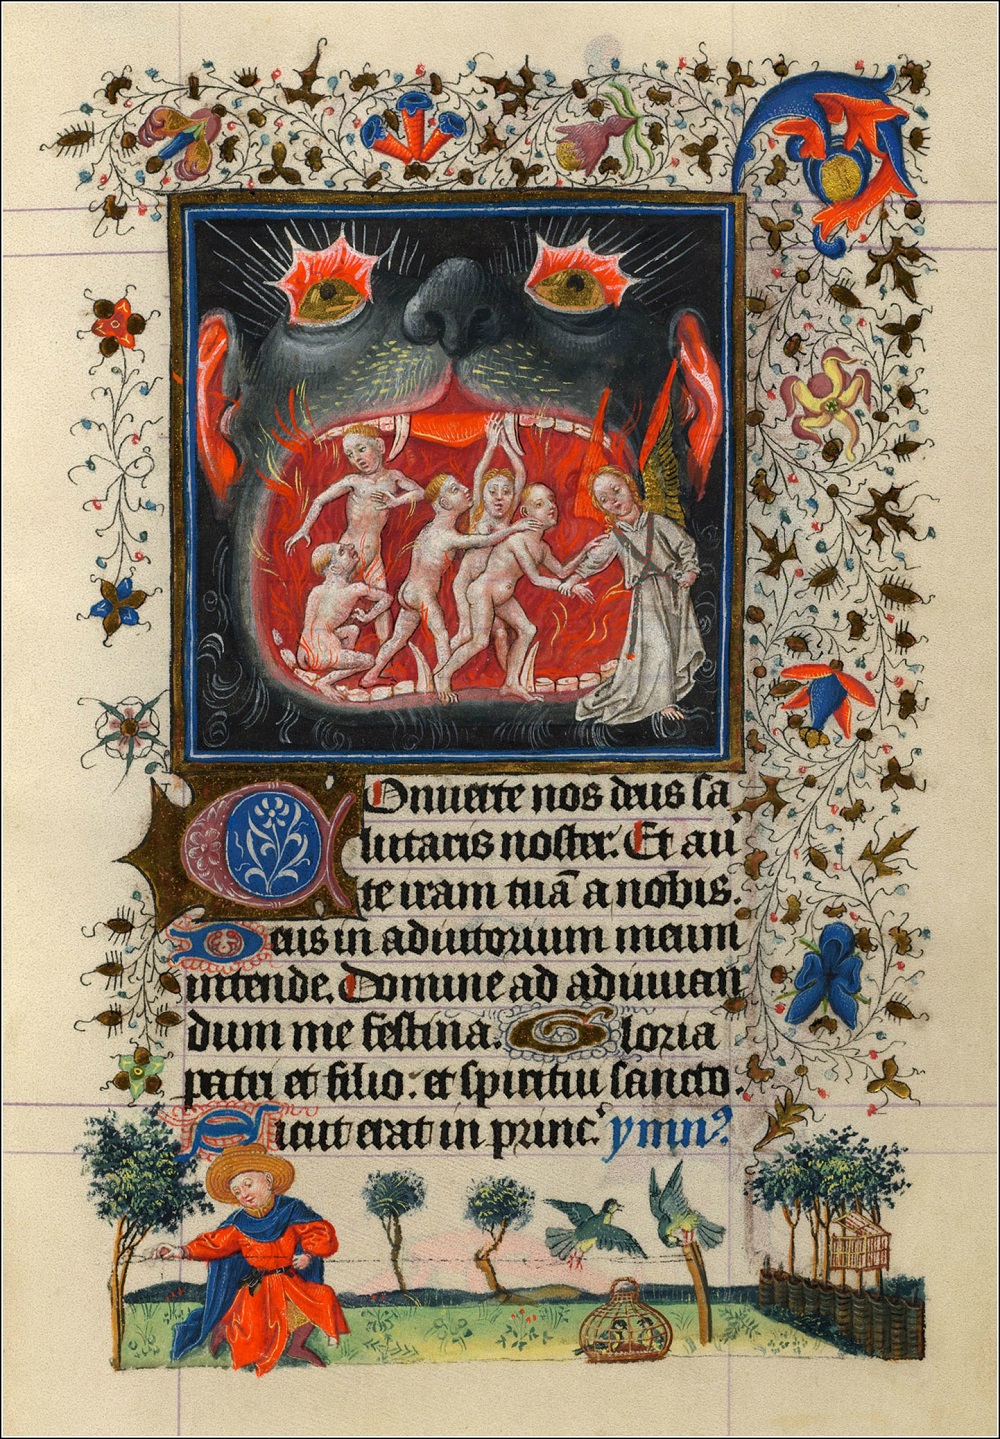 Conuerte nos deus sa
lutaris noster. Et au
te iram tuā a nobis.
Deus in adiutorium meum
intende. Domine ad adiuuan
dum me festina. Gloria
patri et filio: et spiritui sancto.
Sicut erat in princ. ymnꝰ.